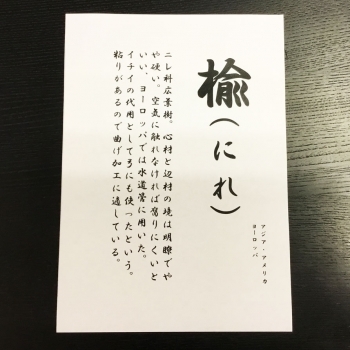 楡(にれ)
アジア・アメリカ
ヨーロッパ
ニレ科広葉樹。心材と辺材の境は明瞭でや
や硬い。空気に触れなければ腐りにくいと
いい、ヨーロッパでは水道管に用いた。
イチイの代用として弓にも使ったという。
粘りがあるので曲げ加工に適している。